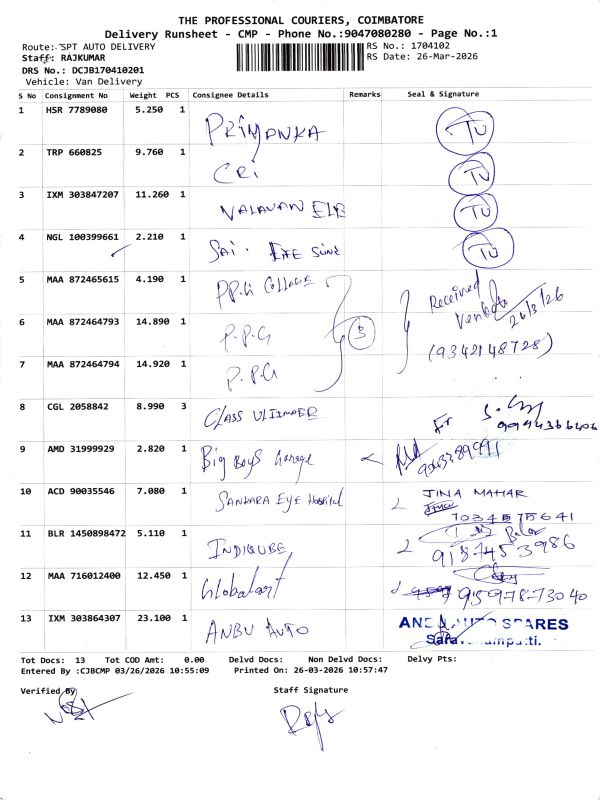 THE PROFESSIONAL COURIERS, COIMBATORE
Delivery Runsheet - CMP - Phone No.:9047080280 - Page No.:1
Route: SPT AUTO DELIVERY
RS No.: 1704102
Staff: RAJKUMAR
RS Date: 26-Mar-2026
DRS No.: DCJB170410201
Vehicle: Van Delivery
S No Consignment No Weight PCS Consignee Details Remarks Seal & Signature
1 HSR 7789080 5.250 1 PRIYANKA TU
2 TRP 660825 9.760 1 CRI TU
3 IXM 303847207 11.260 1 VALAVAN ELE TU
4 NGL 100399661 2.210 1 SAI. LIFE TU
5 MAA 872465615 4.190 1 PP.G College Received
6 MAA 872464793 14.890 1 P.P.G 3 26/3/26
7 MAA 872464794 14.920 1 P.P.G (9342148728)
8 CGL 2058842 8.990 3 CLASS
9 AMD 31999929 2.820 1 Big Boys Garage
10 ACD 90035546 7.080 1 SANKARA Eye Hospital JINA MAHAR
11 BLR 1450898472 5.110 1 INDIQUBE 9187453986
12 MAA 716012400 12.450 1 Globalart 9597873040
13 IXM 303864307 23.100 1 ANBU AUTO SPARES
Tot Docs: 13 Tot COD Amt: 0.00 Delvd Docs: Non Delvd Docs: Delvy Pts:
Entered By :CJBCMP 03/26/2026 10:55:09 Printed On: 26-03-2026 10:57:47
Verified By
Staff Signature